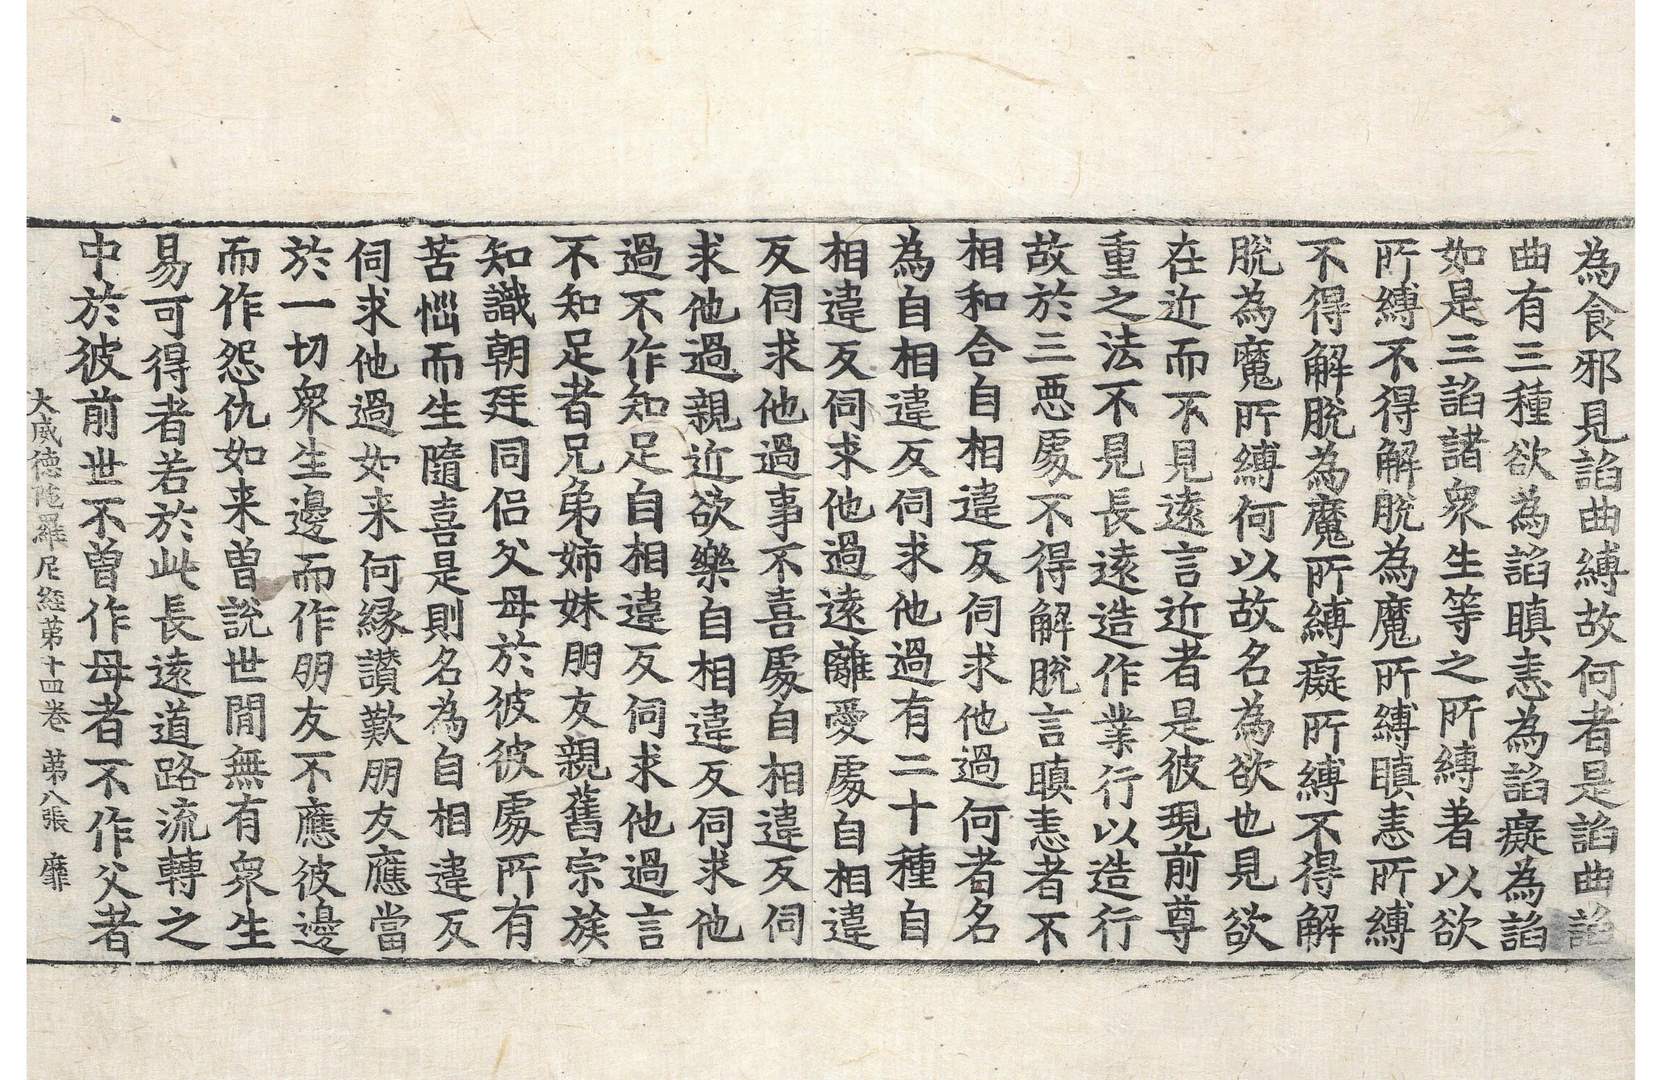 為食邪見諂曲縛故何者是諂曲諂
曲有三種欲為諂瞋恚為諂癡為諂
如是三諂諸衆生等之所縛著以欲
所縛不得解脫為魔所縛瞋恚所縛
不得解脫為魔所縛癡所縛不得解
脫為魔所縛何以故名為欲也見欲
在近而不見遠言近者是彼現前尊
重之法不見長遠造作業行以造行
故於三惡處不得解脫言瞋恚者不
相和合自相違反伺求他過何者名
為自相違反伺求他過有二十種自
相違反伺求他過遠離愛處自相違
反伺求他過事不喜處自相違反伺
求他過親近欲樂自相違反伺求他
過不作知足自相違反伺求他過言
不知足者兄弟姉妹朋友親舊宗族
知識朝廷同侶父母於彼彼處所有
苦惱而生隨喜是則名為自相違反
伺求他過如来何緣讃歎朋友應當
於一切衆生邊而作朋友不應彼邊
而作怨仇如来曾說世間無有衆生
易可得者若於此長遠道路流轉之
中於彼前世不曾作母者不作父者
大威德陁羅尼經第十四卷 第八張 靡